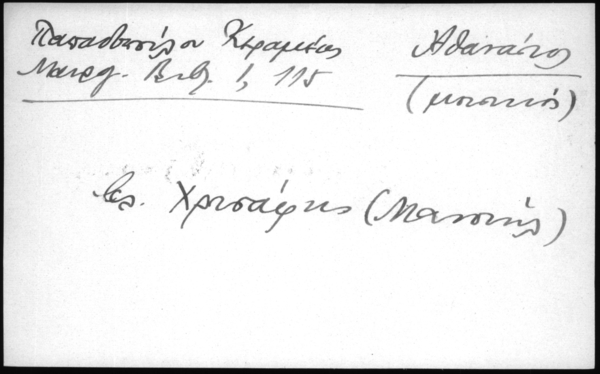 Παπαδοπούλου Κεραμέως
Μαυρογ. Βιβλ. Ι, 115
Αθανάσιος
(μουσικός)
βλ. Χρυσάφης (Μανουήλ)